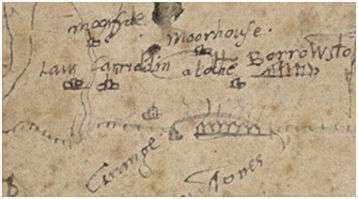 moorside
moorhouse.
Law Carriddin alone Borrowsto
Grange
stones